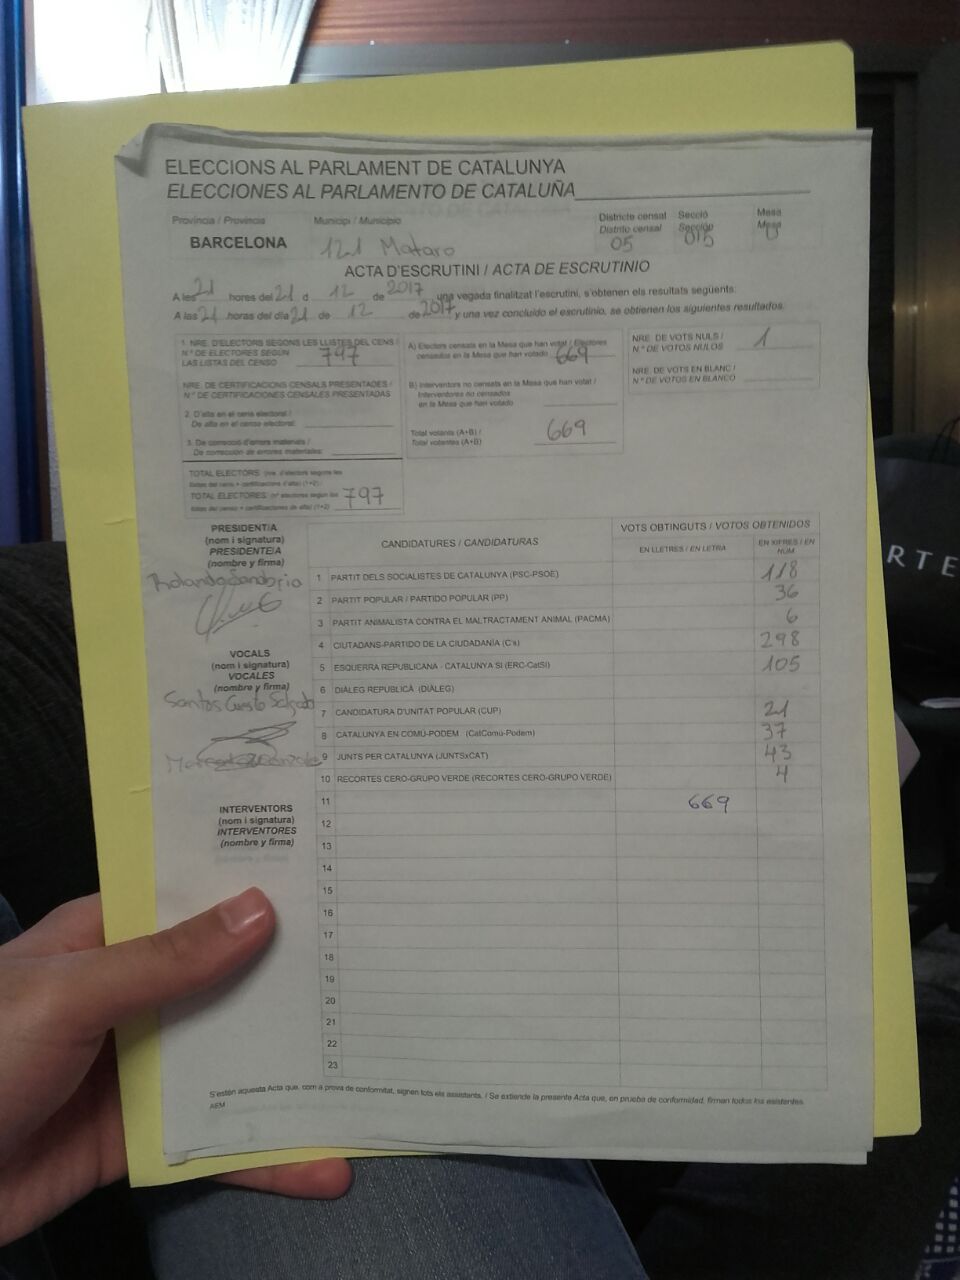 ELECCIONS AL PARLAMENT DE CATALUNYA
ELECCIONES AL PARLAMENTO DE CATALUÑA
Província / Provincia
Municipi / Municipio
Districte censal
Distrito censal
Secció
Sección
Mesa
Mesa
BARCELONA
121 Mataro
05
015
U
ACTA D'ESCRUTINI / ACTA DE ESCRUTINIO
A les 21 hores del 21 d 12 de 2017 una vegada finalitzat l'escrutini, s'obtenen els resultats següents:
A las 21 horas del día 21 de 12 de 2017 y una vez concluido el escrutinio, se obtienen los siguientes resultados.
1. NRE. D'ELECTORS SEGONS LES LLISTES DEL CENS /
N.º DE ELECTORES SEGÚN
LAS LISTAS DEL CENSO 797
NRE. DE CERTIFICACIONS CENSALS PRESENTADES /
N.º DE CERTIFICACIONES CENSALES PRESENTADAS
2. D'alta en el cens electoral /
De alta en el censo electoral:
3. De correcció d'errors materials /
De corrección de errores materiales:
TOTAL ELECTORS: (nre. d'electors segons les
llistes del cens + certificacions d'alta) (1+2) /
TOTAL ELECTORES: (nº electores según las
listas del censo + certificaciones de alta) (1+2) 797
A) Electors censats en la Mesa que han votat / Electores
censados en la Mesa que han votado 669
B) Interventors no censats en la Mesa que han votat /
Interventores no censados
en la Mesa que han votado
Total votants (A+B) /
Total votantes (A+B) 669
NRE. DE VOTS NULS /
N.º DE VOTOS NULOS 1
NRE. DE VOTS EN BLANC /
N.º DE VOTOS EN BLANCO
PRESIDENT/A
(nom i signatura)
PRESIDENTE/A
(nombre y firma)
Rolando Sanabria
VOCALS
(nom i signatura)
VOCALES
(nombre y firma)
Santos Cuesta Salgado
INTERVENTORS
(nom i signatura)
INTERVENTORES
(nombre y firma)
CANDIDATURES / CANDIDATURAS
VOTS OBTINGUTS / VOTOS OBTENIDOS
EN LLETRES / EN LETRA
EN XIFRES / EN NÚM
1 PARTIT DELS SOCIALISTES DE CATALUNYA (PSC-PSOE) 118
2 PARTIT POPULAR / PARTIDO POPULAR (PP) 36
3 PARTIT ANIMALISTA CONTRA EL MALTRACTAMENT ANIMAL (PACMA) 6
4 CIUTADANS-PARTIDO DE LA CIUDADANÍA (C's) 298
5 ESQUERRA REPUBLICANA - CATALUNYA SÍ (ERC-CatSí) 105
6 DIÀLEG REPUBLICÀ (DIÀLEG)
7 CANDIDATURA D'UNITAT POPULAR (CUP) 21
8 CATALUNYA EN COMÚ-PODEM (CatComú-Podem) 37
9 JUNTS PER CATALUNYA (JUNTSxCAT) 43
10 RECORTES CERO-GRUPO VERDE (RECORTES CERO-GRUPO VERDE) 4
11 669
12
13
14
15
16
17
18
19
20
21
22
23
S'estén aquesta Acta que, com a prova de conformitat, signen tots els assistents. / Se extiende la presente Acta que, en prueba de conformidad, firman todos los asistentes.
AEM
RTE